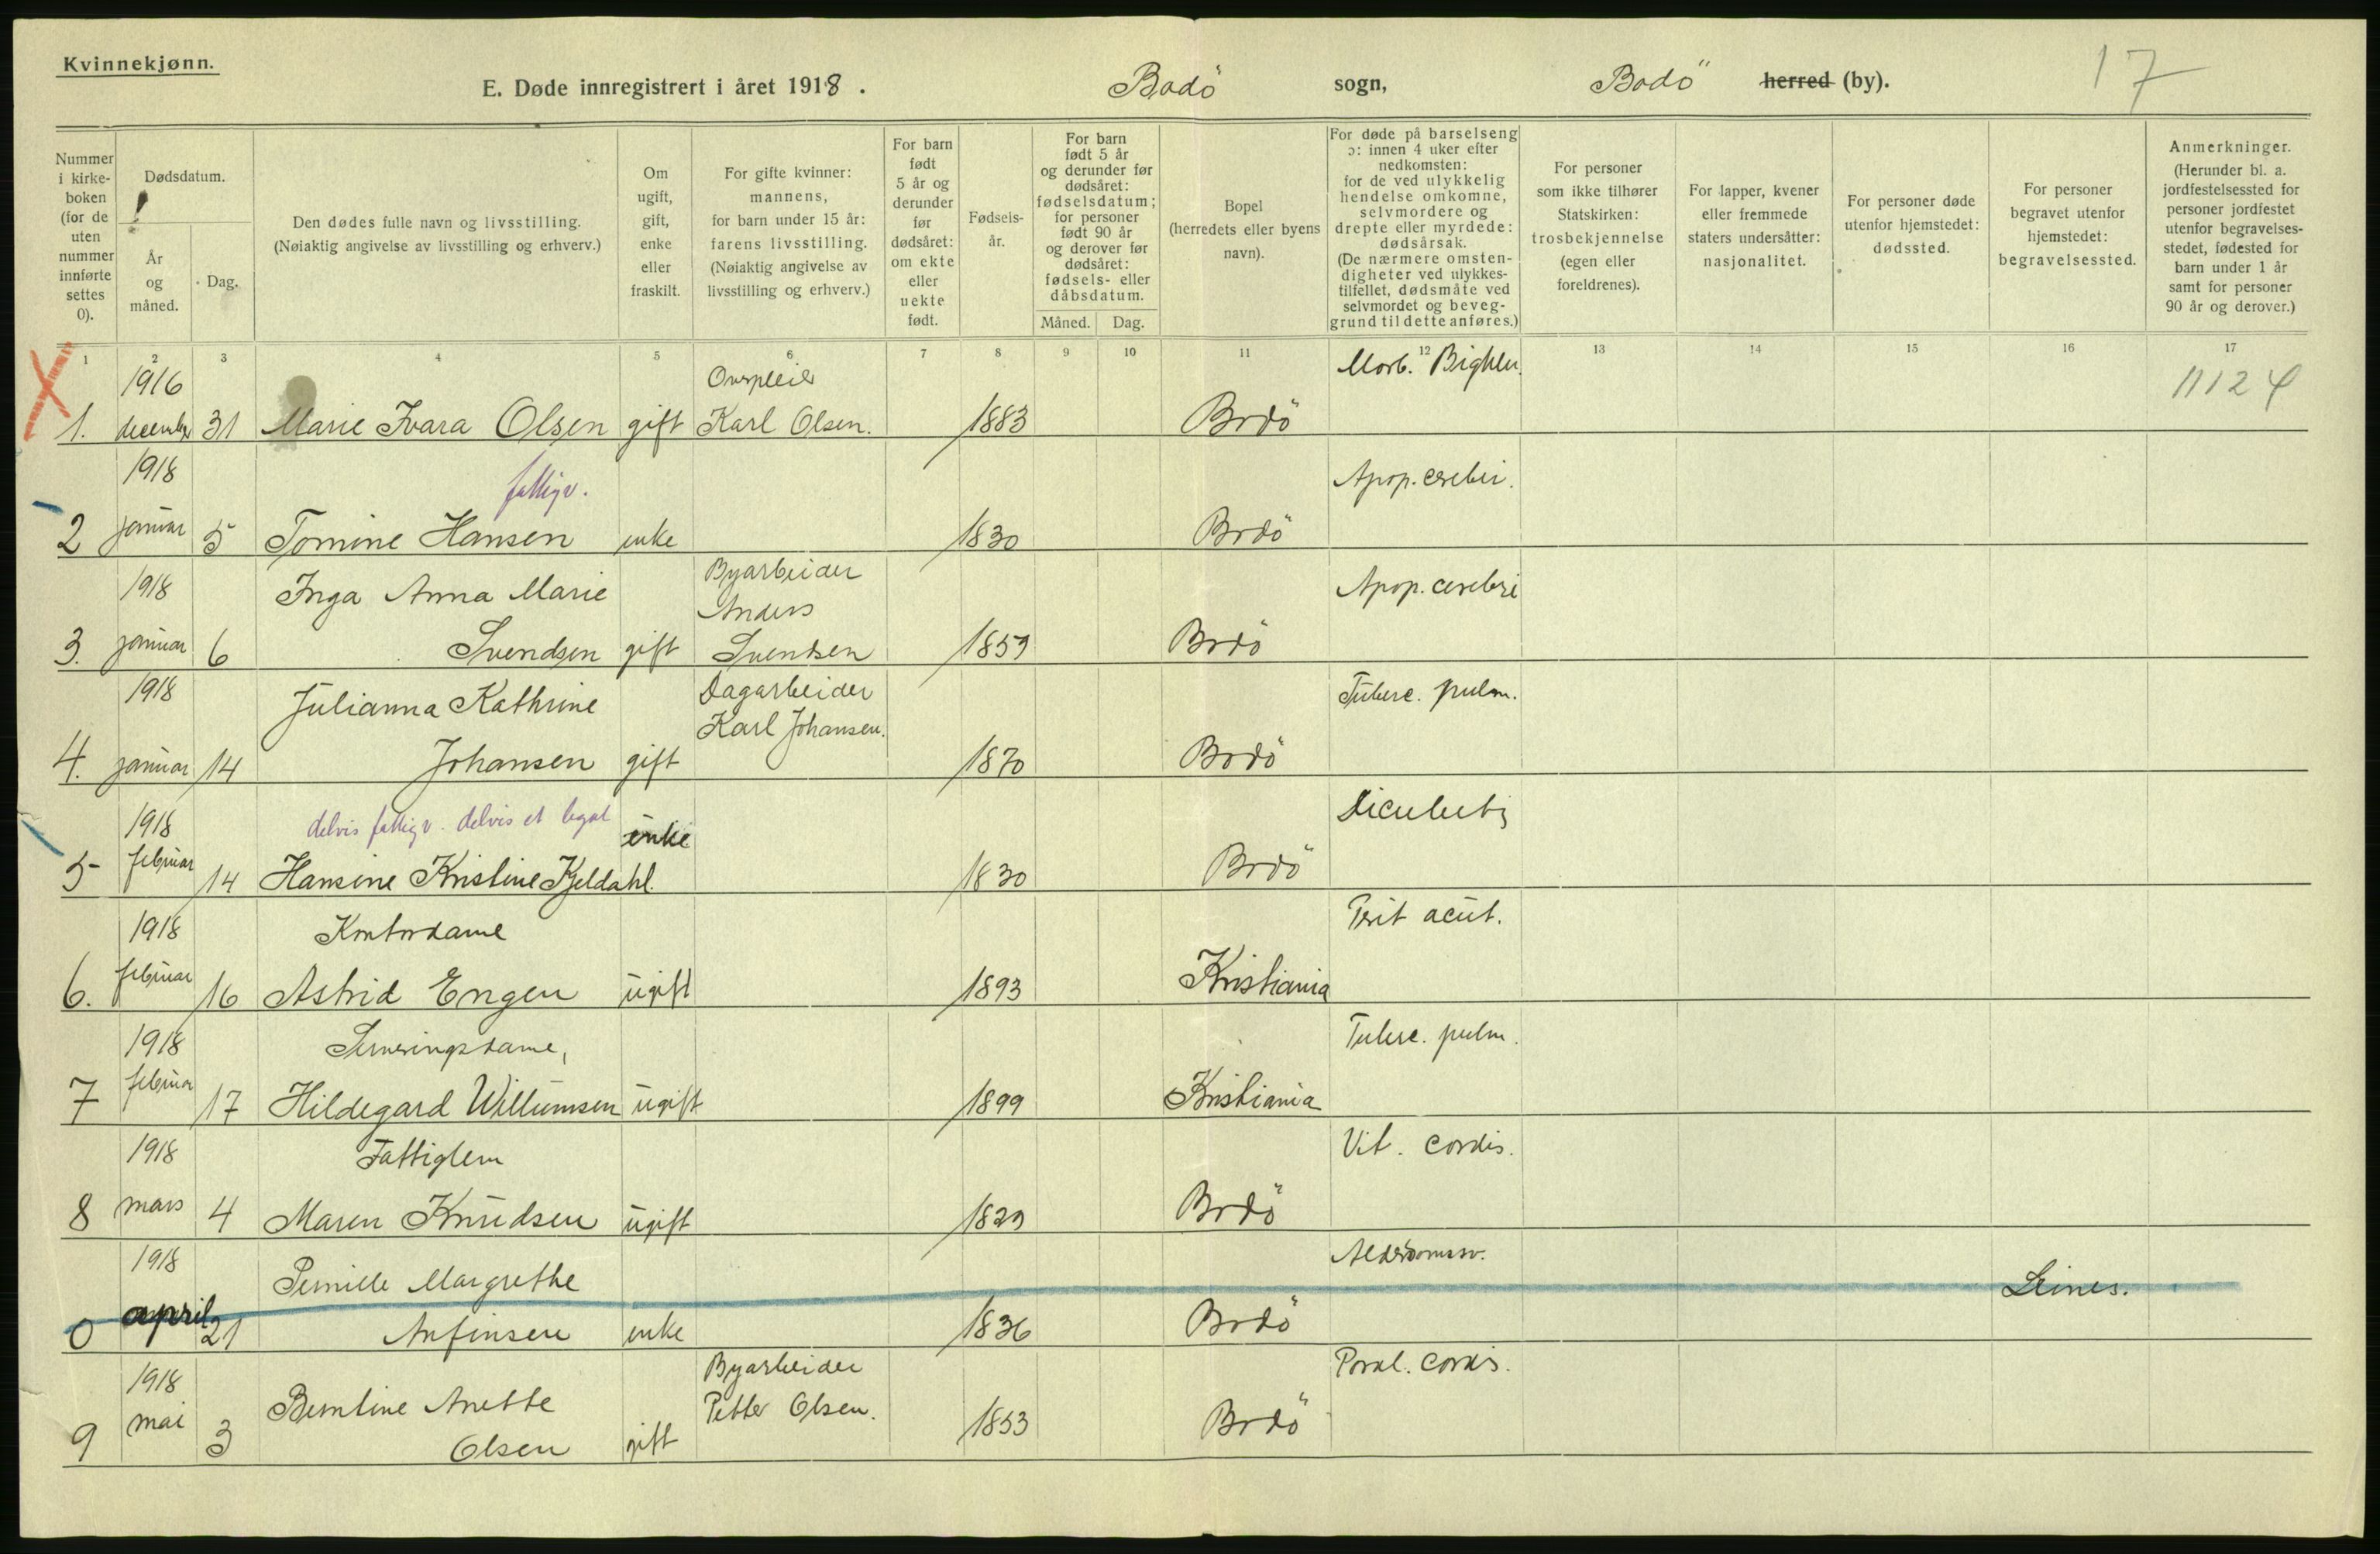 Kvinnekjønn.
E. Døde innregistrert i året 1918. Bodö sogn, Bodö herred (by). 17
Nummer i kirke-boken (for de uten nummer innførte settes 0).
Dødsdatum.
År og måned.
Dag.
Den dødes fulle navn og livsstilling.
(Nøiaktig angivelse av livsstilling og erhverv.)
Om ugift, gift, enke eller fraskilt.
For gifte kvinner: mannens, for barn under 15 år: farens livsstilling. (Nøiaktig angivelse av livsstilling og erhverv.)
For barn født 5 år og derunder før dødsåret: om ekte eller uekte født.
Fødsels-år.
For barn født 5 år og derunder før dødsåret: fødselsdatum; for personer født 90 år og derover før dødsåret: fødsels- eller dåbsdatum.
Måned. Dag.
Bopel (herredets eller byens navn).
For døde på barselseng ɔ: innen 4 uker efter nedkomsten: for de ved ulykkelig hendelse omkomne, selvmordere og drepte eller myrdede: dødsårsak. (De nærmere omsten-digheter ved ulykkes-tilfellet, dødsmåte ved selvmordet og beveg-grund til dette anføres.)
For personer som ikke tilhører Statskirken: trosbekjennelse (egen eller foreldrenes).
For lapper, kvener eller fremmede staters undersåtter: nasjonalitet.
For personer døde utenfor hjemstedet: dødssted.
For personer begravet utenfor hjemstedet: begravelsessted.
Anmerkninger. (Herunder bl. a. jordfestelsessted for personer jordfestet utenfor begravelses-stedet, fødested for barn under 1 år samt for personer 90 år og derover.)
1 2 3 4 5 6 7 8 9 10 11 12 13 14 15 16 17
1916 Morb. 
1. december 31 Marie Ivara Olsen gift Karl Olsen. 1883 Bodö
1918 fattigv. Apop. cerebri.
2 januar 5 Tomine Hansen enke 1830 Bodö
1918 Inga Anna Marie Byarbeider Anders Apop. cerebri
3. januar 6 Svendsen gift Svendsen 1859 Bodö
1918 Julianna Kathrine Dagarbeider Karl Johansen. Tuberc. pulm.
4. januar 14 Johansen gift 1870 Bodö
1918 delvis fattigv. delvis et legat enke
5 februar 14 Hansine Kristine Kjeldahl. 1830 Bodö
1918 Kontordame Perit acut.
6. februar 16 Astrid Engen ugift 1893 Kristiania
1918 Serveringsdame, Tuberc. pulm.
7 februar 17 Hildegard Willumsen ugift 1899 Kristiania
1918 Fattiglem Vit. cordis.
8 mars 4 Maren Knudsen ugift 1829 Bodö
1918 Pernille Margrethe Alderdomssv. Leines.
0 april 21 Anfinsen enke 1836 Bodö
1918 Berntine Anette Byarbeider Petter Olsen. Paral. cordis.
9 mai 3 Olsen gift 1853 Bodö